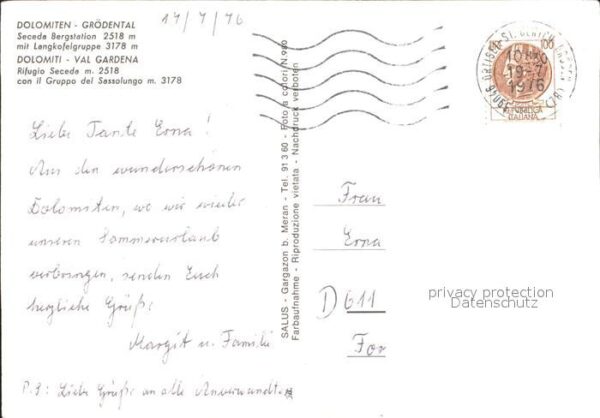 17/7/76
DOLOMITEN - GRÖDENTAL
Seceda Bergstation 2518 m
mit Langkofelgruppe 3178 m
DOLOMITI - VAL GARDENA
Rifugio Seceda m. 2518
con il Gruppo del Sassolungo m. 3178
Liebe Tante Erna!
Aus den wunderschönen
Dolomiten, wo wir wieder
unseren Sommerurlaub
verbringen, senden Euch
herzliche Grüße
Margit u. Familie
P.S: Liebe Grüße an alle Anverwandten
SALUS - Gargazon b. Meran - Tel. 91 3 60 - Foto a colori N.990
Farbaufnahme - Riproduzione vietata - Nachdruck verboten
ORTISEI ST. ULRICH
19-7
1976
100
REPUBBLICA
ITALIANA
Frau
Erna
D 611
For
privacy protection
Datenschutz